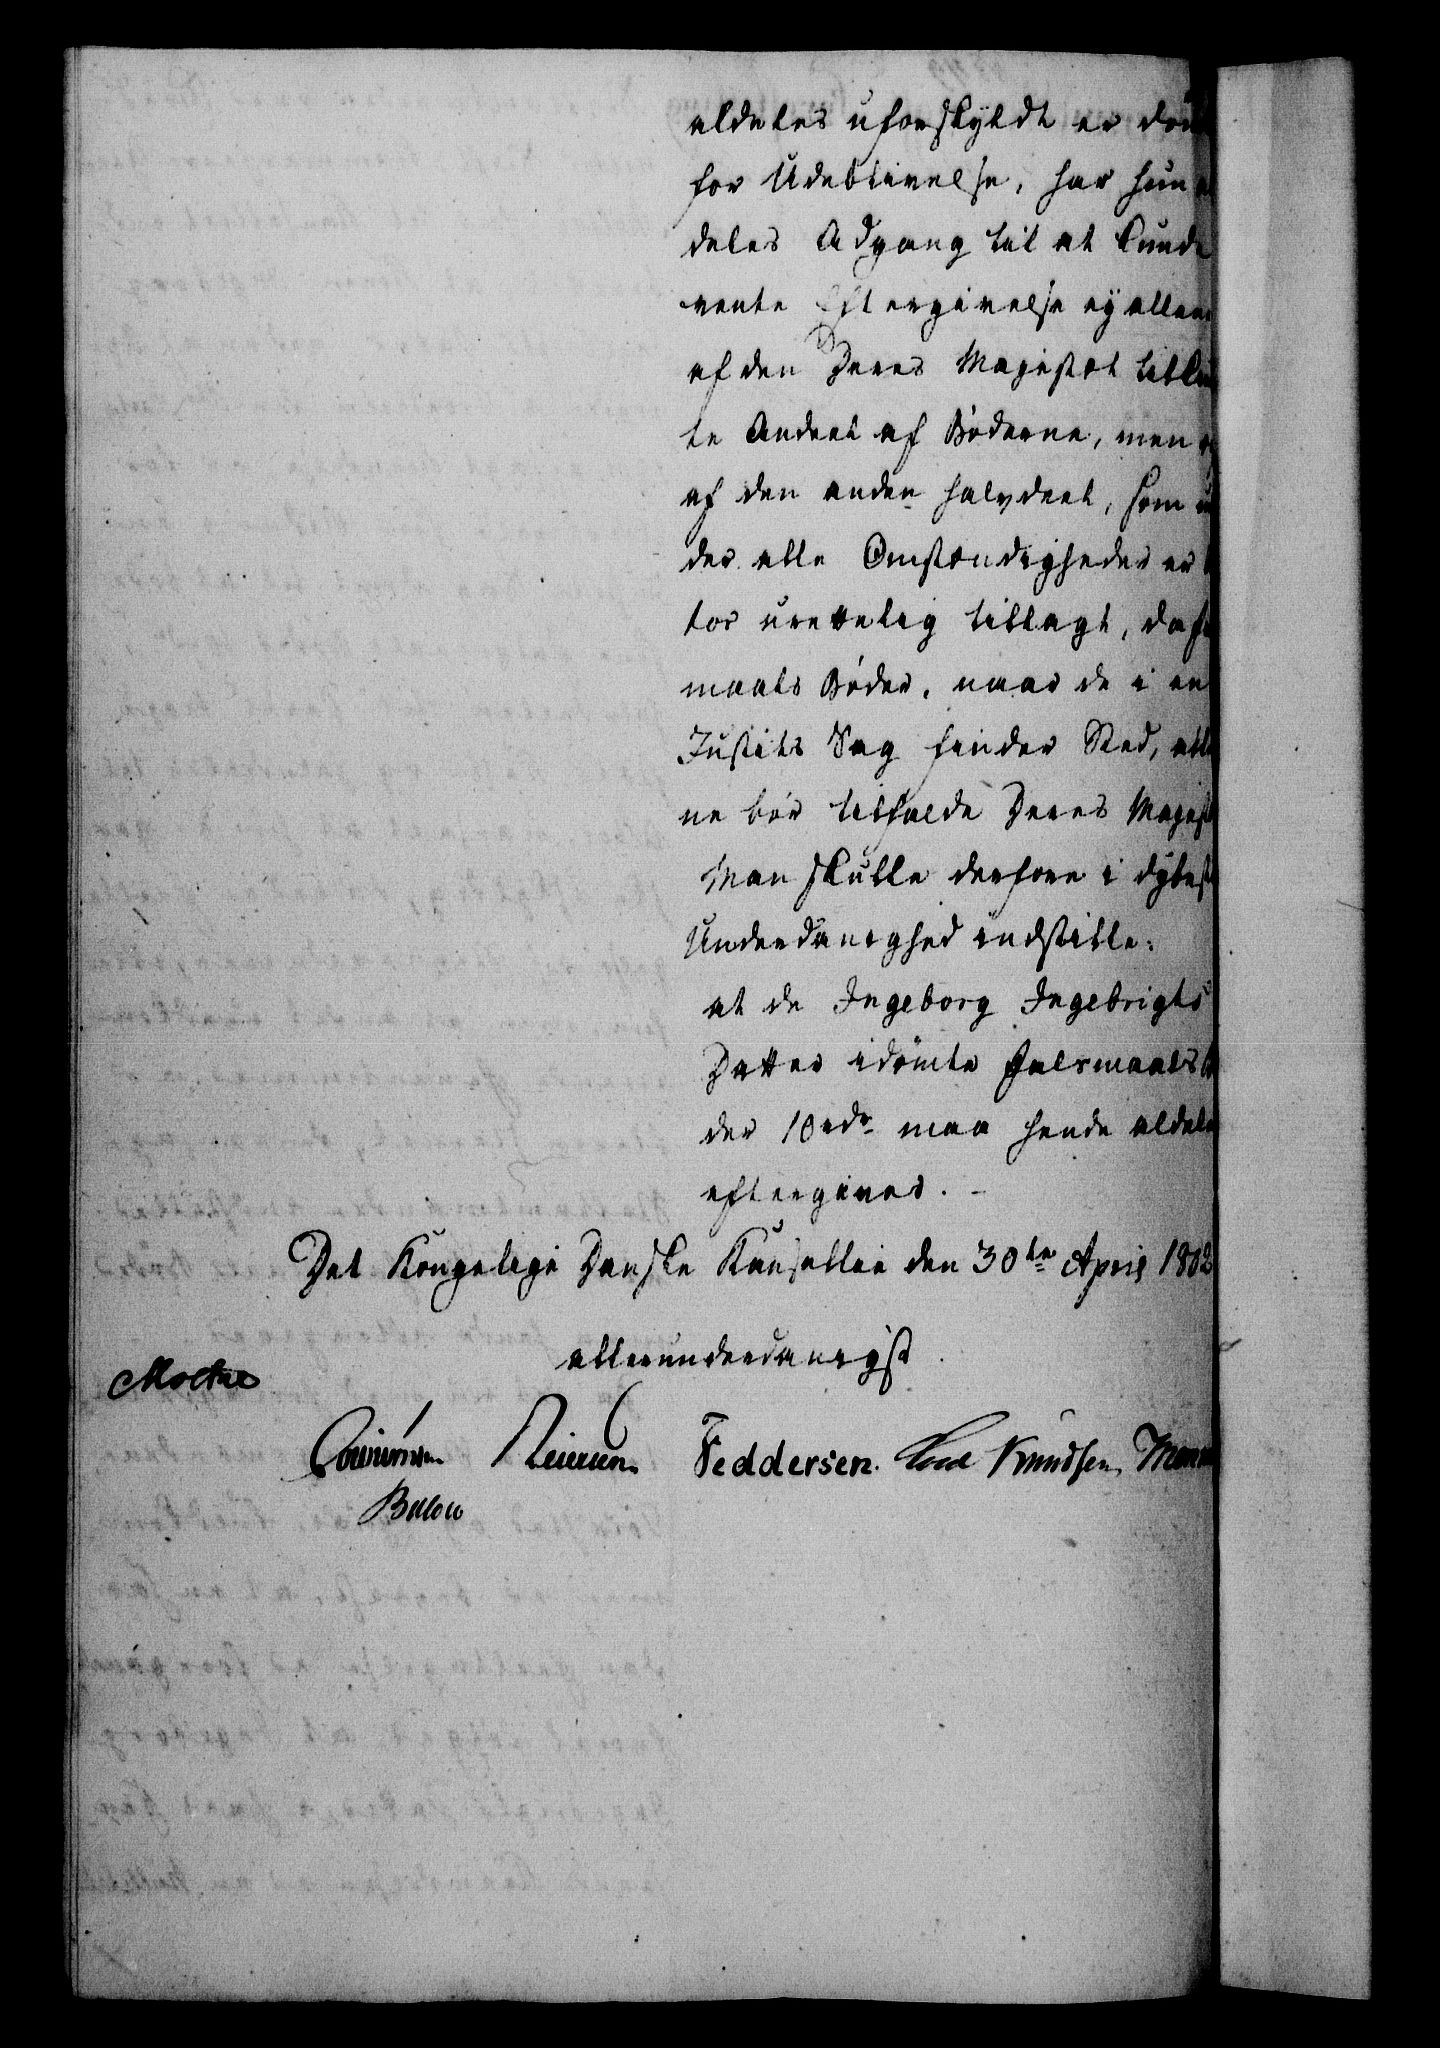 aldeles uforskyldt er
for Udeblivelse, har hun
deles Adgang til at kunde
vente Eftergivelse ej allene
af den Deres Majestæt
te Andeel af Bøderne, men
af den anden halvdeel, som
der alle Omstændigheder er
tor urettelig tillagt, da
maals Bøder, naar de i en
Justits Sag finder Sted, alle
ne bør tilfalde Deres Majest
Man skulle derfore i dybest
Underdanighed indstille:
at de Ingeborg Ingebrigts
Datter idømte Faldsmaals
der 10 rdr. maa hende aldel
eftergives. -
Det Kongelige Danske Kancellie den 30te April 1802
allerunderdanigst
Moltke
Feddersen. Knudsen.
Bülow